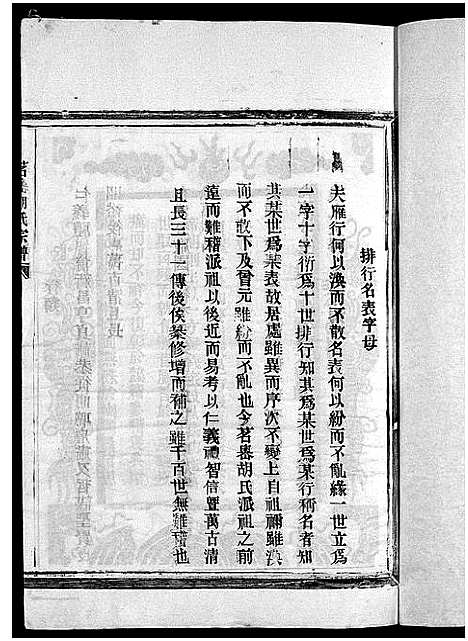 排行名表字母
夫雁行何以渙而不散名表何以紛而不亂緣一世立爲
一字十字衍爲十世排行知其爲某世爲某行稱名者知
其某世爲某表故居處雖異而序次不變上自祖禰雖渙
而不散下及曾元雖紛而不亂也今茗畬胡氏派祖之前
遠而難稽派祖以後近而易考以仁義禮智信暨萬古清
且長三十二傳後俟纂修增而補之雖千百世無難稽也
胡氏宗譜